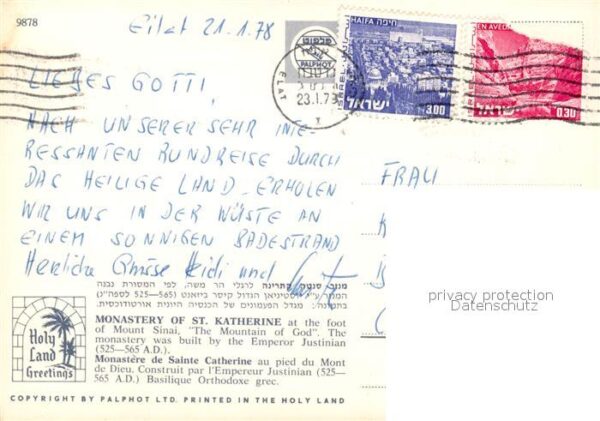 9878
Eilat 21.1.78
PALPHOT
חיפה HAIFA
ISRAEL
ישראל
3.00
EN AVEDAT
ישראל
0.30
ELAT
23.1.78
LIEBES GOTTI,
NACH UNSERER SEHR INTE
RESSANTEN RUNDREISE DURCH
DAS HEILIGE LAND ERHOLEN
WIR UNS IN DER WÜSTE AN
EINEM SONNIGEN BADESTRAND
Herzliche Grüsse Heidi und
FRAU
privacy protection
Datenschutz
מנזר סנטה קתרינה לרגלי הר משה, לפי המסורת נבנה
המנזר ע"י יוסטיניאן הגדול קיסר ביזאנט (525—565 לספה"נ)
בתמונה: מגדל הפעמונים של הכנסיה היונית אורטודוכסית.
MONASTERY OF ST. KATHERINE at the foot
of Mount Sinai, "The Mountain of God". The
monastery was built by the Emperor Justinian
(525—565 A.D.).
Monastère de Sainte Catherine au pied du Mont
de Dieu. Construit par l'Empereur Justinian (525—
565 A.D.) Basilique Orthodoxe grec.
Holy
Land
Greetings
COPYRIGHT BY PALPHOT LTD. PRINTED IN THE HOLY LAND